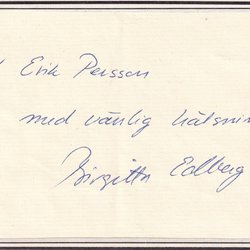 Erik Persson
med vänlig hälsnin
Birgitta Edberg